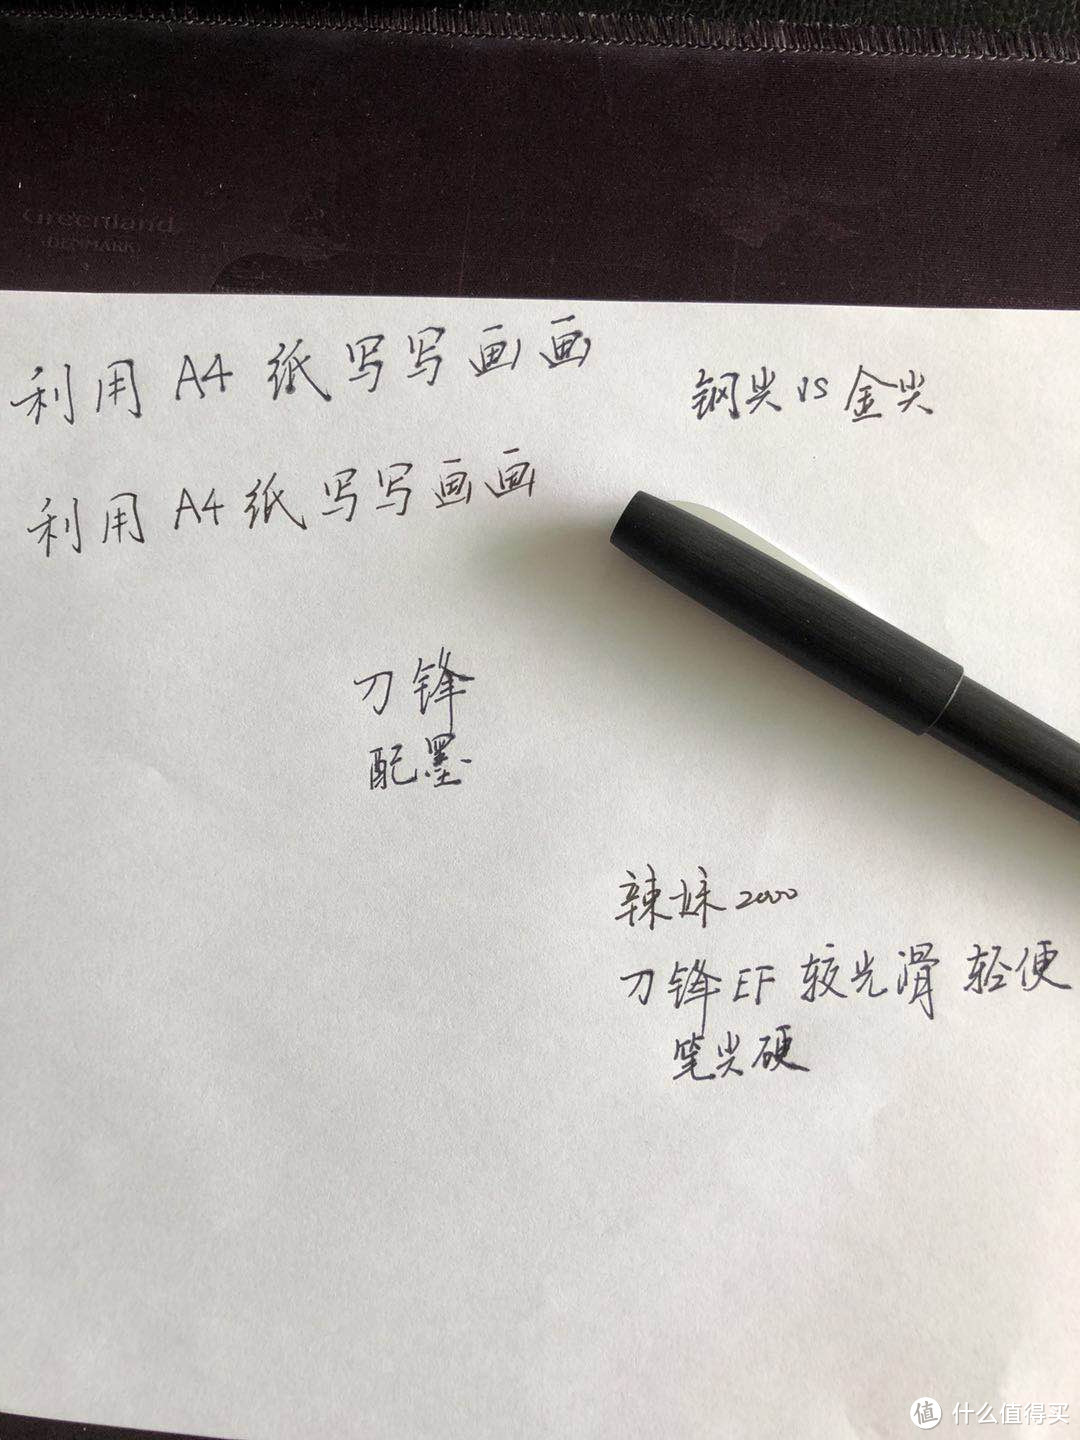 Greenland
DENMARK
利用A4纸写写画画
钢尖VS金尖
利用A4纸写写画画
刀锋
配墨
辣妹2000
刀锋EF较光滑 轻便
笔尖硬
值 什么值得买